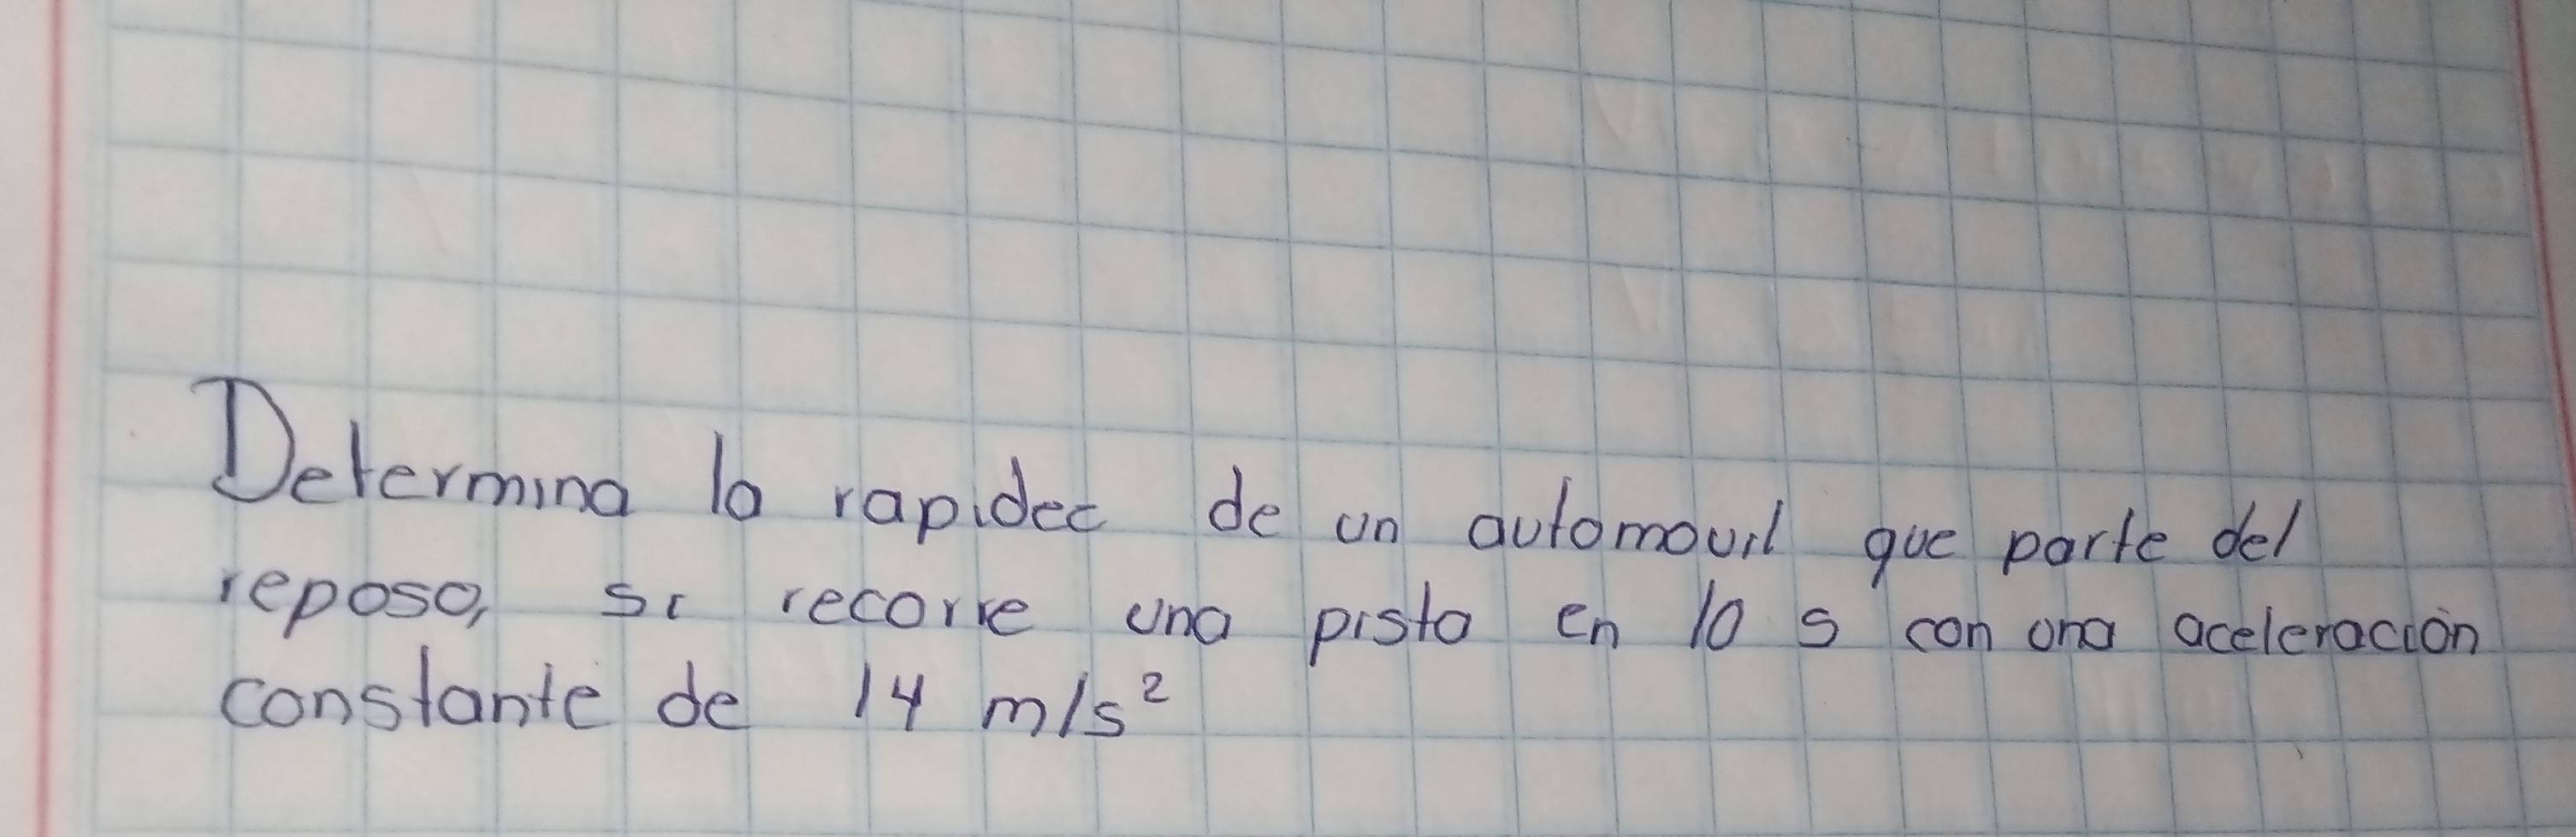 Determina la rapidez de un automovil que parte del
reposo, si recorre una pista en 10 s con una aceleración
constante de 14 m/s²